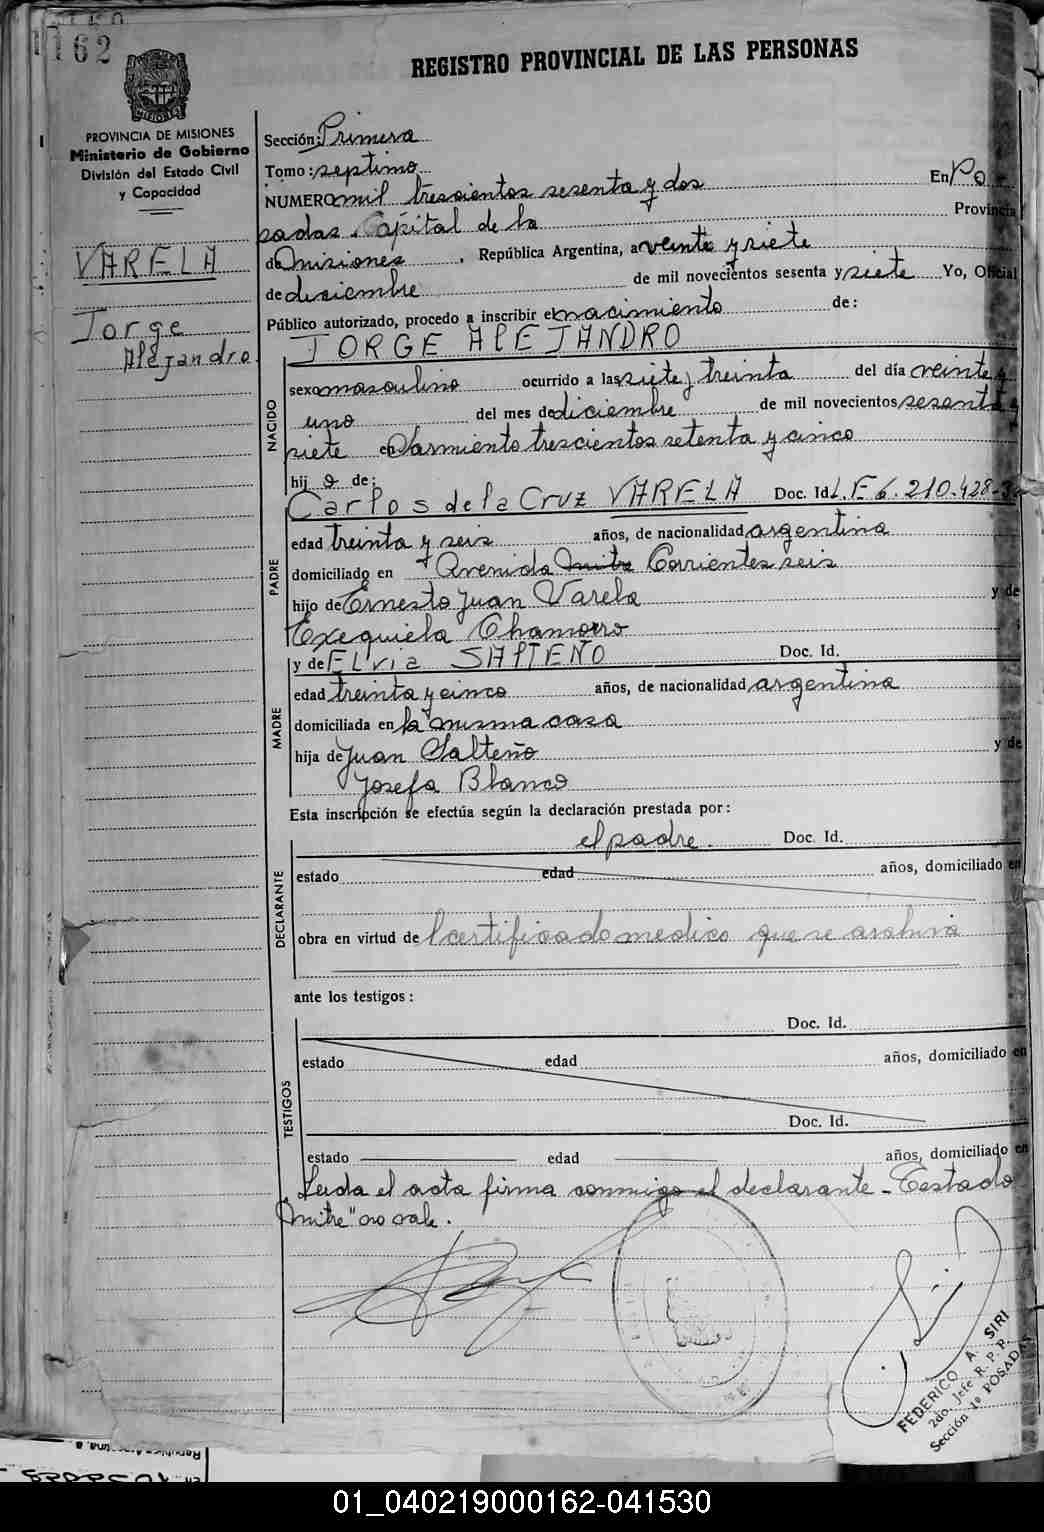 162
REGISTRO PROVINCIAL DE LAS PERSONAS
PROVINCIA DE MISIONES
Ministerio de Gobierno
División del Estado Civil
y Capacidad
VARELA
Jorge
Alejandro
Sección: Primera
Tomo: septimo
NUMERO mil trescientos sesenta y dos En Po-
sadas Capital de la Provincia
de Misiones, República Argentina, a veinte y siete
de diciembre de mil novecientos sesenta y siete Yo, Oficial
Público autorizado, procedo a inscribir el nacimiento de:
JORGE ALEJANDRO
NACIDO
sexo masculino ocurrido a las siete y treinta del día veinte y
uno del mes de diciembre de mil novecientos sesenta y
siete en Sarmiento trescientos setenta y cinco
hijo de:
Carlos de la Cruz VARELA Doc. Id. L.E 6.210.428
PADRE
edad treinta y seis años, de nacionalidad argentina
domiciliado en Avenida Mitre Corrientes seis
hijo de Ernesto Juan Varela y de
Exequiela Chamorro
y de Elvia SALTEÑO Doc. Id.
MADRE
edad treinta y cinco años, de nacionalidad argentina
domiciliada en la misma casa
hija de Juan Salteño y de
Josefa Blanco
Esta inscripción se efectúa según la declaración prestada por:
el padre. Doc. Id.
DECLARANTE
estado edad años, domiciliado en
obra en virtud de l certificado medico que se archiva
ante los testigos:
Doc. Id.
TESTIGOS
estado edad años, domiciliado en
Doc. Id.
estado edad años, domiciliado en
Leida el acta firma conmigo el declarante - Testado
"Mitre" no vale.
FEDERICO A. SIRI
2do. Jefe R. P. P.
Sección 1º POSADAS
01_040219000162-041530